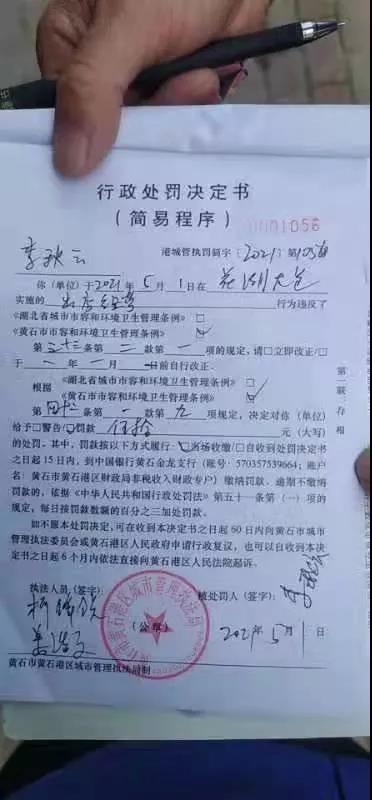 行政处罚决定书
（简易程序）
0001056
港城管执罚简字〔2021〕第1056
李秋云
你（单位）于2021年5月1日在花湖大道
实施的出店经营行为违反了
《湖北省城市市容和环境卫生管理条例》□
《黄石市市容和环境卫生管理条例》☑
第三十三条第二款第一项的规定，请□立即改正/□
于 年 月 日前自行改正。
根据
《湖北省城市市容和环境卫生管理条例》□
《黄石市市容和环境卫生管理条例》☑
第四十二条第一款第九项规定，决定对你（单位）
给予□警告☑罚款伍拾元（大写）
的处罚。其中，罚款按以下方式履行：☑当场收缴/□自收到处罚决定书
之日起15日内，到中国银行黄石金龙支行（账号：570357539664；账户
名：黄石市黄石港区财政局非税收入财政专户）缴纳罚款。逾期不缴纳
罚款的，依据《中华人民共和国行政处罚法》第五十一条第（一）项的
规定，每日按罚款数额的百分之三加处罚款。
如不服本处罚决定，可在收到本决定书之日起60日内向黄石市城市
管理执法委员会或黄石港区人民政府申请行政复议，也可以自收到本决
定书之日起6个月内依法直接向黄石港区人民法院起诉。
第二联存根
执法人员（签字）：
被处罚人（签字）：
李秋云
（公章）
2021年5月1日
黄石市黄石港区城市管理执法局
黄石市黄石港区城市管理执法局制